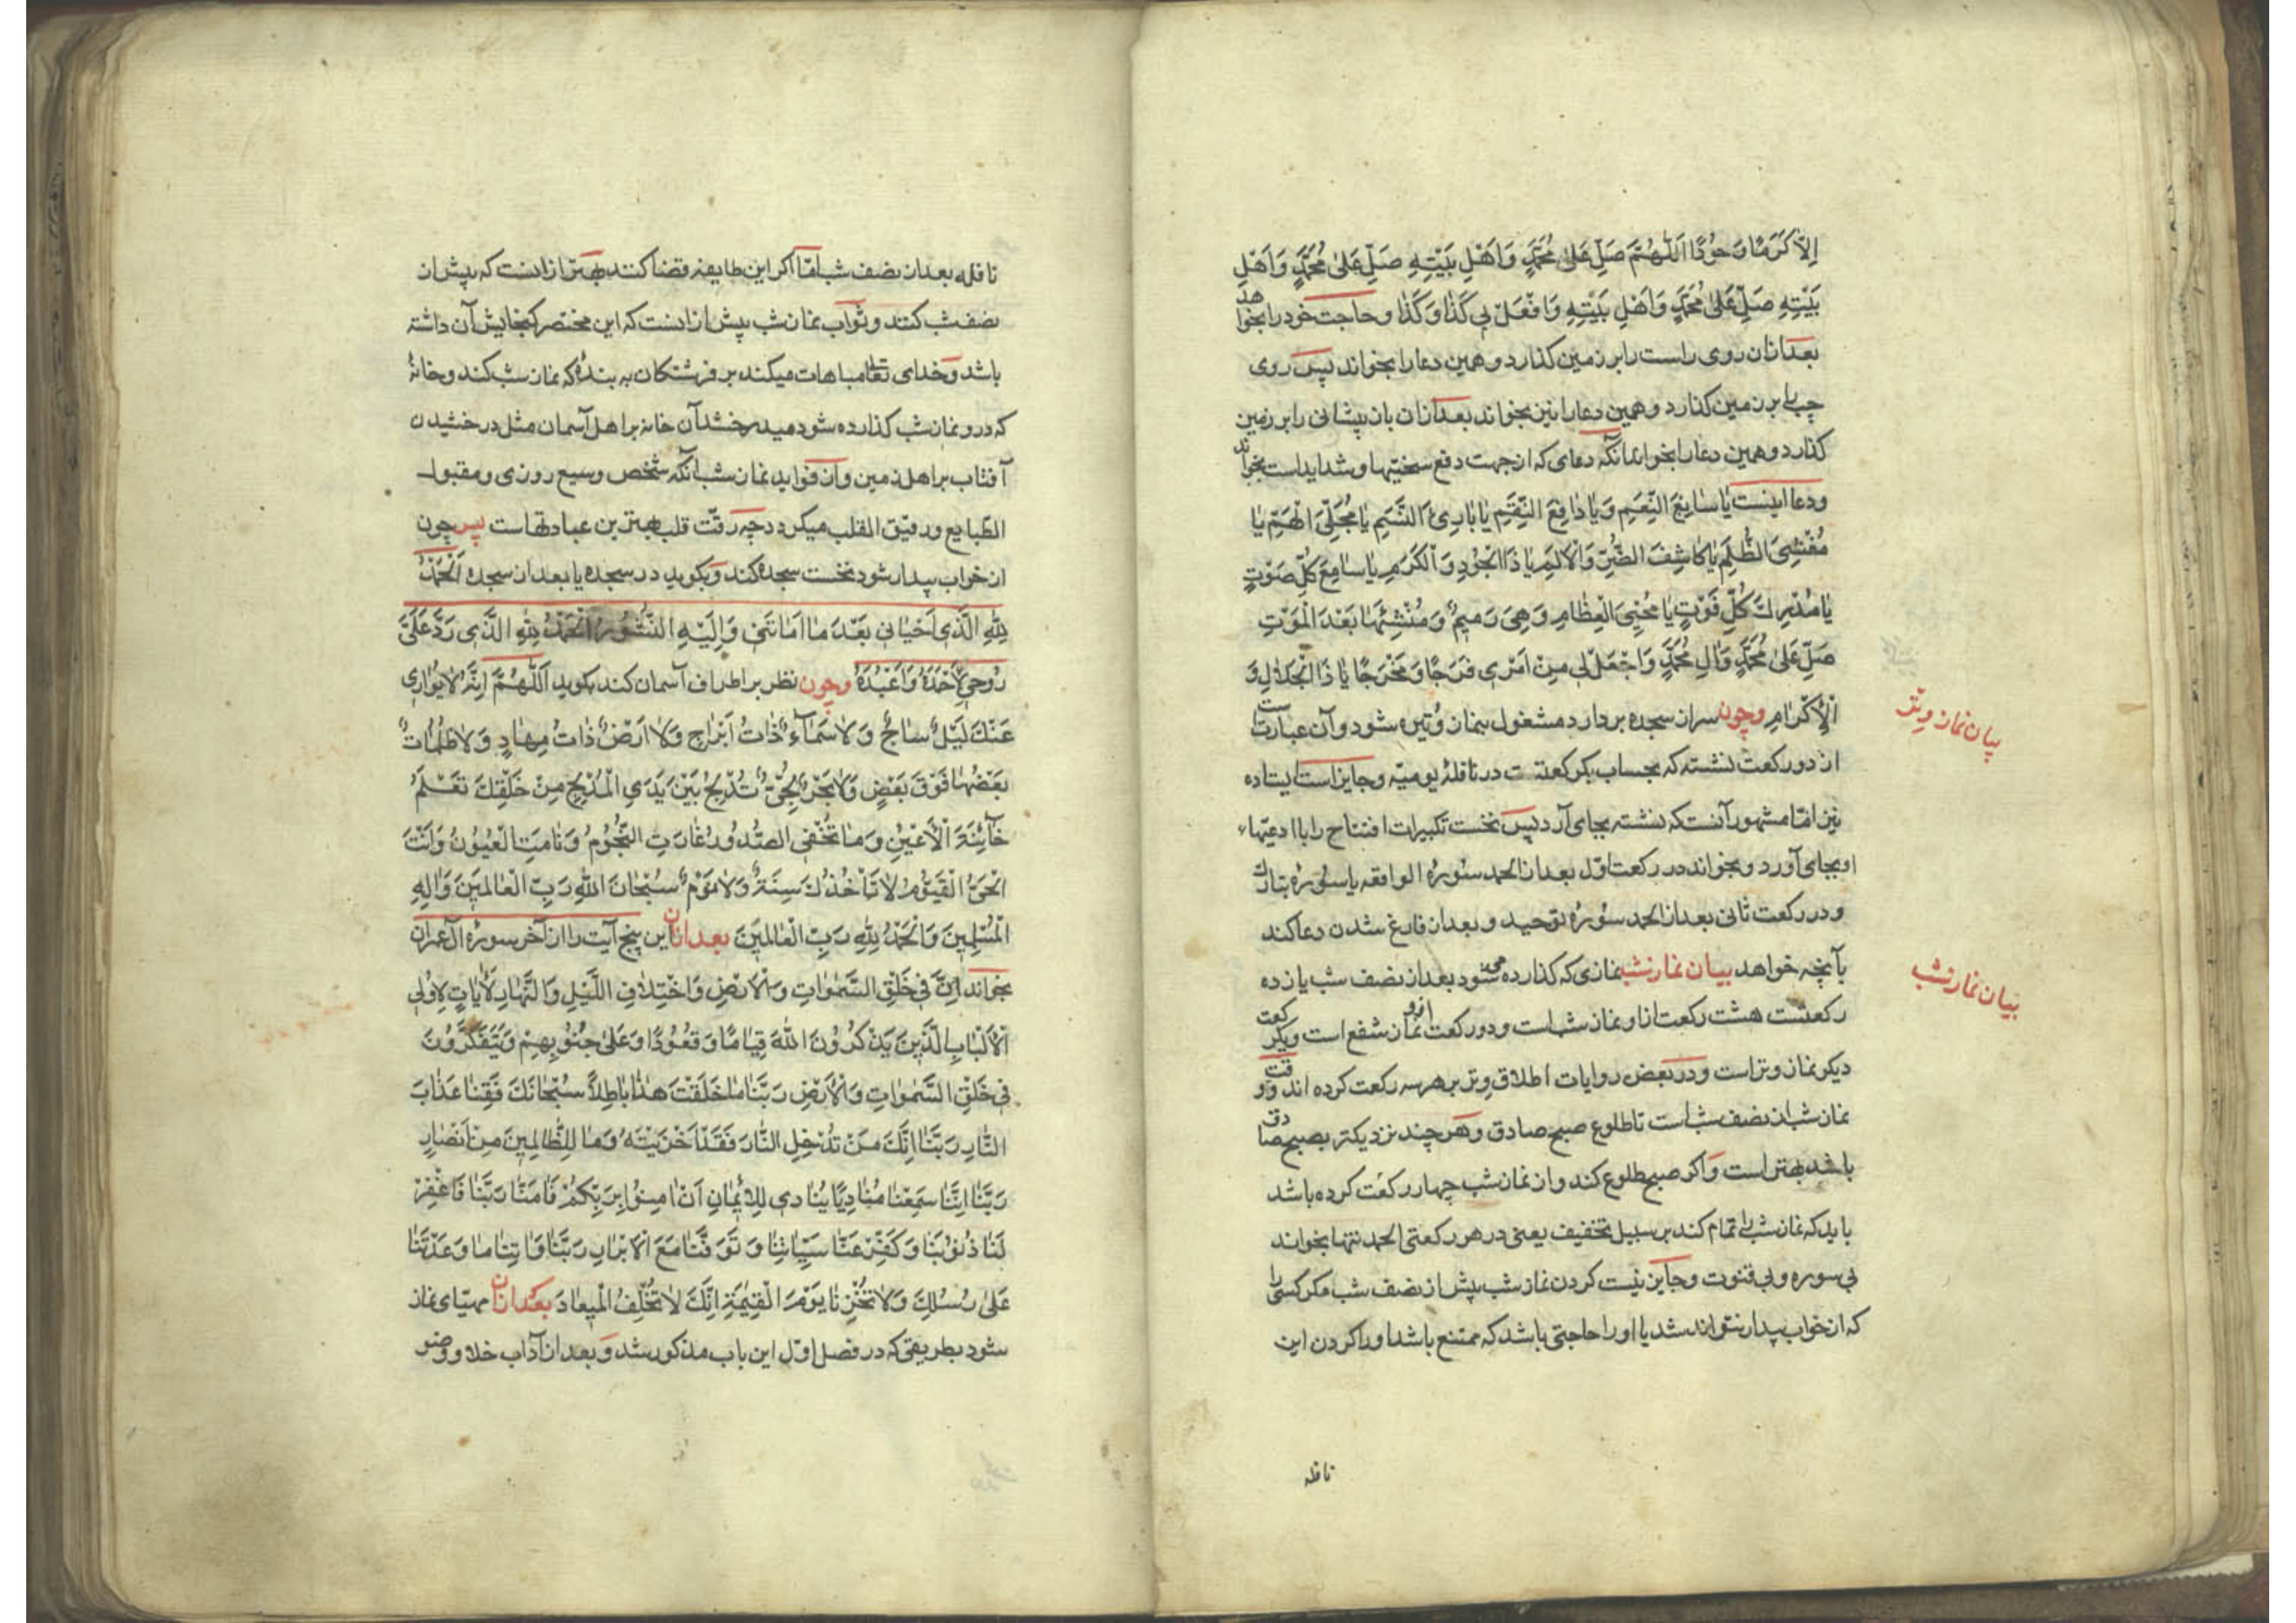 اِلّا كَرَمًا وَ جُودًا اَللّٰهُمَّ صَلِّ عَلىٰ مُحَمَّدٍ وَاَهْلِ بَيْتِهِ صَلِّ عَلىٰ مُحَمَّدٍ وَاَهْلِ
بَيْتِهِ صَلِّ عَلىٰ مُحَمَّدٍ وَاَهْلِ بَيْتِهِ وَافْعَلْ بي كَذٰا وَكَذٰا و حاجت خود را بخواهد
بعد ازان روی راست را بر زمین کذارد و همین دعا را بخواند پس روی
چپ را بر زمین کذارد و همین دعا را نیز بخواند بعد ازان باز پیشانی را بر زمین
کذارد و همین دعا را بخواند انکه دعای که از جهت دفع سختیها و شداید است بخواند
و دعا اینست يٰا سٰابِغَ النِّعَمِ وَيٰا دٰافِعَ النِّقَمِ يٰا بٰارِئَ النَّسَمِ يٰا مُجَلِّيَ الْهِمَمِ يٰا
مُغْشِيَ الظُّلَمِ يٰا كٰاشِفَ الضُّرِّ وَالْاَلَمِ يٰا ذَا الْجُودِ وَالْكَرَمِ يٰا سٰامِعَ كُلِّ صَوْتٍ
يٰا مُدْرِكَ كُلِّ فَوْتٍ يٰا مُحْيِيَ الْعِظٰامِ وَهِيَ رَمِيمٌ وَ مُنْشِئَهٰا بَعْدَ الْمَوْتِ
صَلِّ عَلىٰ مُحَمَّدٍ وَاٰلِ مُحَمَّدٍ وَاجْعَلْ لي مِنْ اَمْري فَرَجًا وَ مَخْرَجًا يٰا ذَا الْجَلٰالِ وَ
الْاِكْرٰامِ وچون سر از سجده بردارد مشغول بنماز وُتیره شود و آن عبارت
از دو رکعت نشسته که بحساب یکرکعتست در نافلهٔ یومیّه و جایز است ایستاده
نیز امّا مشهور آنستکه نشسته بجای آرد پس نخست تکبیرات افتتاح را با ادعیّهاء
او بجای آورد و بخواند در رکعت اوّل بعد از الحمد سورهٔ الواقعه یا سورهٔ تبارک
و در رکعت ثانی بعد از الحمد سورهٔ توحید و بعد از فارغ شدن دعا کند
بآنچه خواهد بیان نماز شب نمازی که کذارده می شود بعد از نصف شب یازده
رکعتست هشت رکعت ازا و نماز شب است و دو رکعت ازو نماز شفع است و یکرکعت
دیکر نماز وتر است و در بعض روایات اطلاق وتر بر هر سه رکعت کرده اند و وقت
نماز شب از نصف شب است تا طلوع صبح صادق و هر چند نزدیکتر بصبح صادق
باشد بهتر است و اکر صبح طلوع کند و از نماز شب چهار رکعت کرده باشد
باید که نماز شب را تمام کند بر سبیل تخفیف یعنی در هر رکعتی الحمد تنها بخواند
بی سوره و بی قنوت و جایز نیست کردن نماز شب پیش از نصف شب مکر کسی را
که از خواب بیدار نتواند شد یا او را حاجتی باشد که ممتنع باشد او را کردن این
نافله
بیان نماز وتر
بیان نماز شب
نافله بعد از نصف شب امّا اکر این طایفه قضا کنند بهتر ازانست که پیش از
نصف شب کنند و ثواب نماز شب بیش ازانست که این مختصر کنجایش آن داشته
باشد و خدای تعالی مباهات میکند بر فرشتکان به بندهٔ که نماز شب کند و خانهٔ
که در و نماز شب کذارده شود میدرخشد آن خانه بر اهل آسمان مثل درخشیدن
آفتاب بر اهل زمین و از فواید نماز شب آنکه شخص وسیع روزی و مقبول
الطبایع و رقیق القلب میکردد چه رقّت قلب بهترین عبادتهاست پس چون
از خواب بیدار شود نخست سجده کند و بکوید در سجده یا بعد از سجده اَلْحَمْدُ
لِلّٰهِ الَّذي اَحْيٰاني بَعْدَ مٰا اَمٰاتَني وَاِلَيْهِ النُّشُورُ اَلْحَمْدُ لِلّٰهِ الَّذي رَدَّ عَلَيَّ
رُوحي لِاَحْمَدَهُ وَاَعْبُدَهُ وچون نظر بر اطراف آسمان کند بکوید اَللّٰهُمَّ اِنَّهُ لٰا يُوٰاري
عَنْكَ لَيْلٌ سٰاجٍ وَلٰا سَمٰآءٌ ذٰاتُ اَبْرٰاجٍ وَلٰا اَرْضٌ ذٰاتُ مِهٰادٍ وَلٰا ظُلُمٰاتٌ
بَعْضُهٰا فَوْقَ بَعْضٍ وَلٰا بَحْرٌ لُجِّيٌّ تُدْلِجُ بَيْنَ يَدَيِ الْمُدْلِجِ مِنْ خَلْقِكَ تَعْلَمُ
خٰآئِنَةَ الْاَعْيُنِ وَمٰا تُخْفِي الصُّدُورُ غٰارَتِ النُّجُومُ وَنٰامَتِ الْعُيُونُ وَاَنْتَ
الْحَيُّ الْقَيُّومُ لٰا تَاْخُذُكَ سِنَةٌ وَلٰا نَوْمٌ سُبْحٰانَ اللّٰهِ رَبِّ الْعٰالَمِينَ وَاِلٰهِ
الْمُسْلِمِينَ وَالْحَمْدُ لِلّٰهِ رَبِّ الْعٰالَمِينَ بعد ازان این پنج آیت را از آخر سورهٔ آل عمران
بخواند اِنَّ في خَلْقِ السَّمٰوٰاتِ وَالْاَرْضِ وَاخْتِلٰافِ اللَّيْلِ وَالنَّهٰارِ لَاٰيٰاتٍ لِاُولِي
الْاَلْبٰابِ الَّذِينَ يَذْكُرُونَ اللّٰهَ قِيٰامًا وَقُعُودًا وَعَلىٰ جُنُوبِهِمْ وَيَتَفَكَّرُونَ
في خَلْقِ السَّمٰوٰاتِ وَالْاَرْضِ رَبَّنٰا مٰا خَلَقْتَ هٰذٰا بٰاطِلًا سُبْحٰانَكَ فَقِنٰا عَذٰابَ
النّٰارِ رَبَّنٰا اِنَّكَ مَنْ تُدْخِلِ النّٰارَ فَقَدْ اَخْزَيْتَهُ وَمٰا لِلظّٰالِمِينَ مِنْ اَنْصٰارٍ
رَبَّنٰا اِنَّنٰا سَمِعْنٰا مُنٰادِيًا يُنٰادي لِلْاِيمٰانِ اَنْ اٰمِنُوا بِرَبِّكُمْ فَاٰمَنّٰا رَبَّنٰا فَاغْفِرْ
لَنٰا ذُنُوبَنٰا وَكَفِّرْ عَنّٰا سَيِّئٰاتِنٰا وَتَوَفَّنٰا مَعَ الْاَبْرٰارِ رَبَّنٰا وَاٰتِنٰا مٰا وَعَدْتَنٰا
عَلىٰ رُسُلِكَ وَلٰا تُخْزِنٰا يَوْمَ الْقِيٰمَةِ اِنَّكَ لٰا تُخْلِفُ الْمِيعٰادَ بعد ازان مهیّای نماز
شود بطریقی که در فصل اوّل این باب مذکور شد و بعد از آداب خلا و وضو